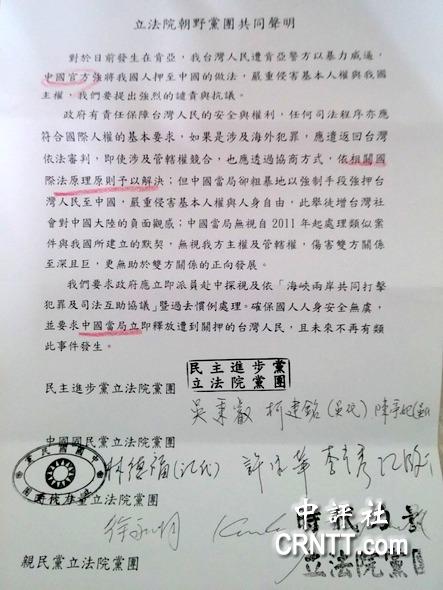 立法院朝野黨團共同聲明
對於目前發生在肯亞，我台灣人民遭肯亞警方以暴力威逼，
中國官方強將我國人押至中國的做法，嚴重侵害基本人權與我國
主權，我們要提出強烈的譴責與抗議。
政府有責任保障台灣人民的安全與權利，任何司法程序亦應
符合國際人權的基本要求，如果是涉及海外犯罪，應遣返回台灣
依法審判，即使涉及管轄權競合，也應透過協商方式，依相關國
際法原理原則予以解決；但中國當局卻粗暴地以強制手段強押台
灣人民至中國，嚴重侵害基本人權與人身自由，此舉徒增台灣社
會對中國大陸的負面觀感；中國當局無視自2011年起處理類似案
件與我國所建立的默契，無視我方主權及管轄權，傷害雙方關係
至深且巨，更無助於雙方關係的正向發展。
我們要求政府應立即派員赴中探視及依「海峽兩岸共同打擊
犯罪及司法互助協議」暨過去慣例處理。確保國人人身安全無虞，
並要求中國當局立即釋放遭到關押的台灣人民，且未來不再有類
此事件發生。
民主進步黨
立法院黨團
民主進步黨立法院黨團
吳秉叡 柯建銘
中國國民黨立法院黨團
林德福
立法院黨團
徐永明
時代力量
立法院黨團
親民黨立法院黨團
中評社
CRNTT.com